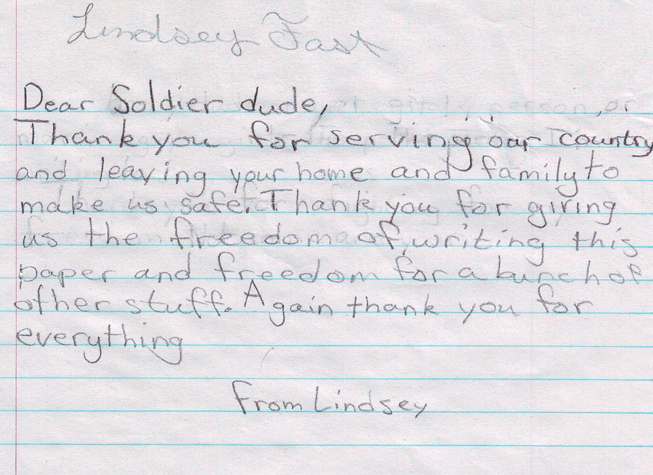 Lindsey Fast
Dear Soldier dude,
Thank you for serving our country
and leaving your home and family to
make us safe. Thank you for giving
us the freedom of writing this
paper and freedom for a bunch of
other stuff. Again thank you for
everything
From Lindsey